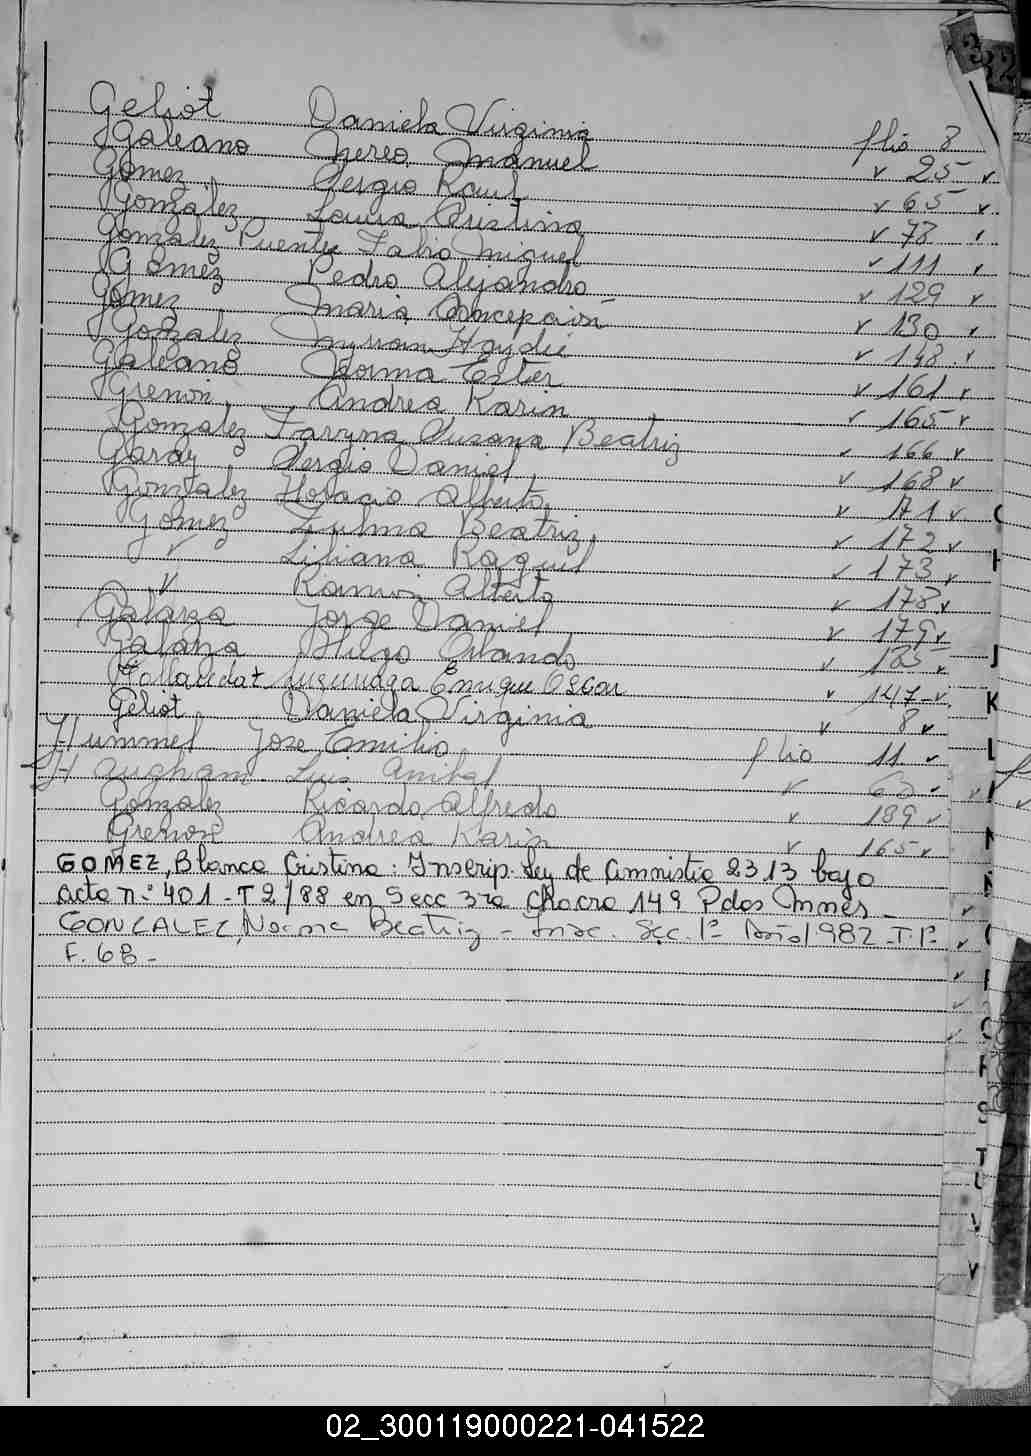 332
Geliot Daniela Virginia flio 8
Galeano Nereo Manuel v 25 v
Gomez Sergio Raul v 65 v
Gonzalez Laura Cristina v 78
Gonzalez Puentes Fabio Miguel v 111 v
Gomez Pedro Alejandro v 129 v
Gomez Maria Concepcion v 130 v
Gonzalez Myrian Haydee v 148 v
Galeano Norma Ester v 161 v
Grenon Andrea Karin v 165 v
Gonzalez Susana Beatriz v 166 v
Garay Sergio Daniel v 168 v
Gonzalez Horacio Alberto v 171 v
Gomez Zulma Beatriz v 172 v
v Liliana Raquel v 173 v
v Ramon Alberto v 178 v
Galarza Jorge Daniel v 179 v
Galarza Diego Orlando v v
Enrique Oscar v 147 v
Geliot Daniela Virginia v 8 v
Hummel Jose Emilio flio 11 v
Luis Anibal v
Gonzalez Ricardo Alfredo v 189 v
Grenon Andrea Karin v 165 v
GOMEZ, Blanca Cristina: Inscrip. Ley de Amnistia 2313 bajo
acta n° 401 - T 2/88 en Secc 3ra Chacra 149 Pdas Mnes -
GONZALEZ, Norma Beatriz - Insc. Sec. 1ª Año 1982 - T. 1º
F. 68 -
02_300119000221-041522